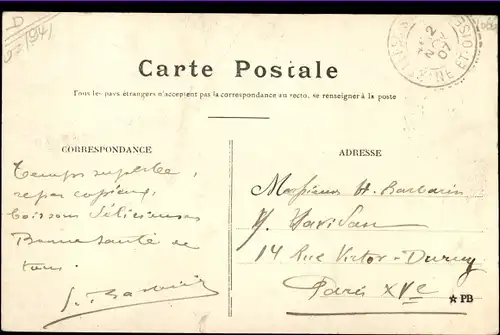 D
1941
Carte Postale
Tous les pays étrangers n'acceptent pas la correspondance au recto, se renseigner à la poste
CORRESPONDANCE
ADRESSE
Temps superbe,
repas copieux,
boissons délicieuses
Bonne santé de
tous.
Monsieur H. Barbarin
14 Rue Victor-Duruy
Paris XVe
PB
2
NOV
07
SEINE-ET-OISE